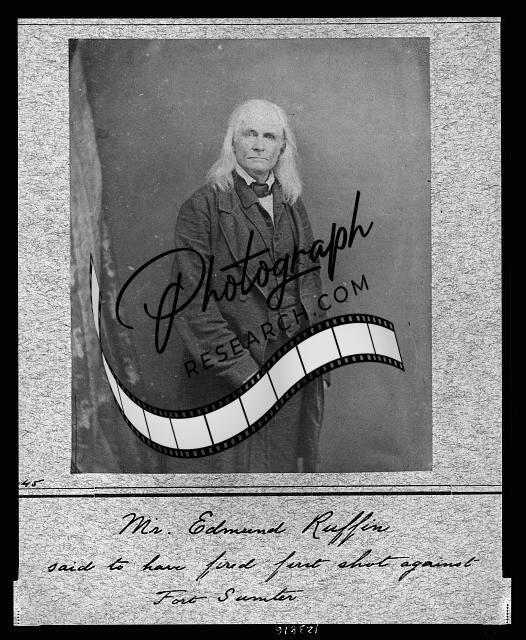 Photograph
RESEARCH.COM
45
Mr. Edmund Ruffin
said to have fired first shot against
Fort Sumter
12316